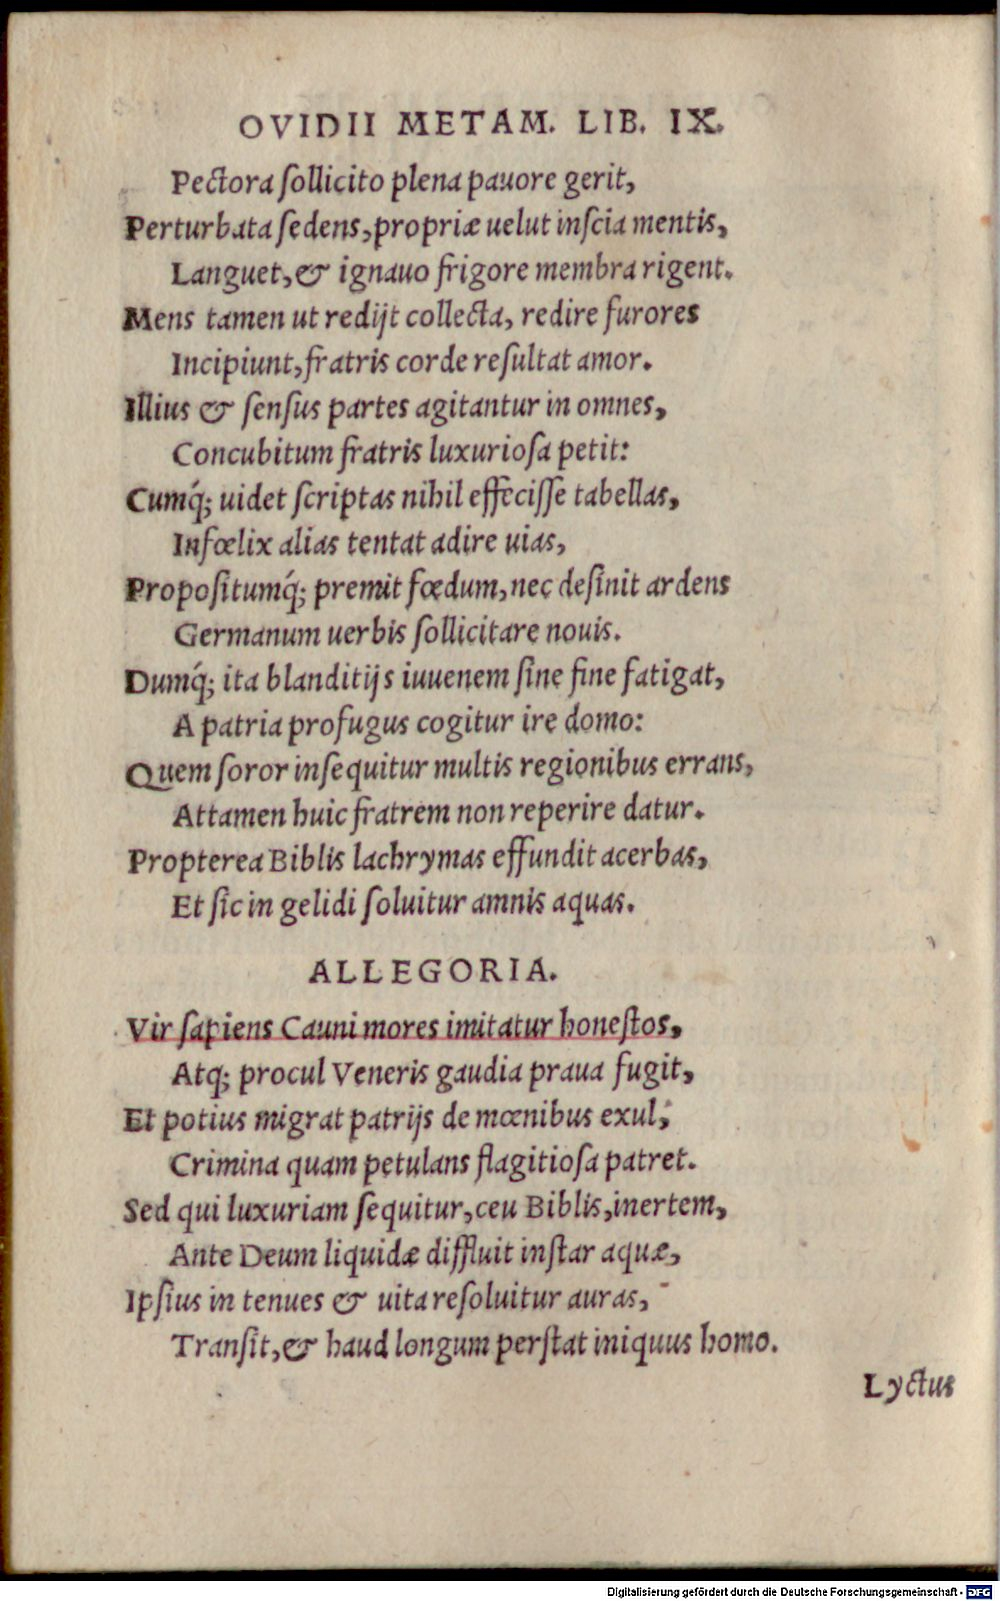 OVIDII METAM. LIB. IX.
Pectora ſollicito plena pauore gerit,
Perturbata ſedens, propriæ uelut inſcia mentis,
Languet, & ignauo frigore membra rigent.
Mens tamen ut redijt collecta, redire furores
Incipiunt, fratris corde reſultat amor.
Illius & ſenſus partes agitantur in omnes,
Concubitum fratris luxurioſa petit:
Cumq́; uidet ſcriptas nihil effeciſſe tabellas,
Infœlix alias tentat adire uias,
Propoſitumq́; premit fœdum, nec deſinit ardens
Germanum uerbis ſollicitare nouis.
Dumq́; ita blanditijs iuuenem ſine fine fatigat,
A patria profugus cogitur ire domo:
Quem ſoror inſequitur multis regionibus errans,
Attamen huic fratrem non reperire datur.
Propterea Biblis lachrymas effundit acerbas,
Et ſic in gelidi ſoluitur amnis aquas.
ALLEGORIA.
Vir ſapiens Cauni mores imitatur honeſtos,
Atq; procul Veneris gaudia praua fugit,
Et potius migrat patrijs de mœnibus exul,
Crimina quam petulans flagitioſa patret.
Sed qui luxuriam ſequitur, ceu Biblis, inertem,
Ante Deum liquidæ diffluit inſtar aquæ,
Ipſius in tenues & uita reſoluitur auras,
Tranſit, & haud longum perſtat iniquus homo.
Lyctus
Digitalisierung gefördert durch die Deutsche Forschungsgemeinschaft - DFG